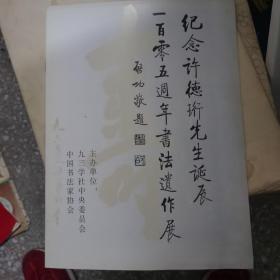 纪念许德珩先生诞辰
一百零五週年书法遗作展
启功敬题
主办单位：
九三学社中央委员会
中国书法家协会